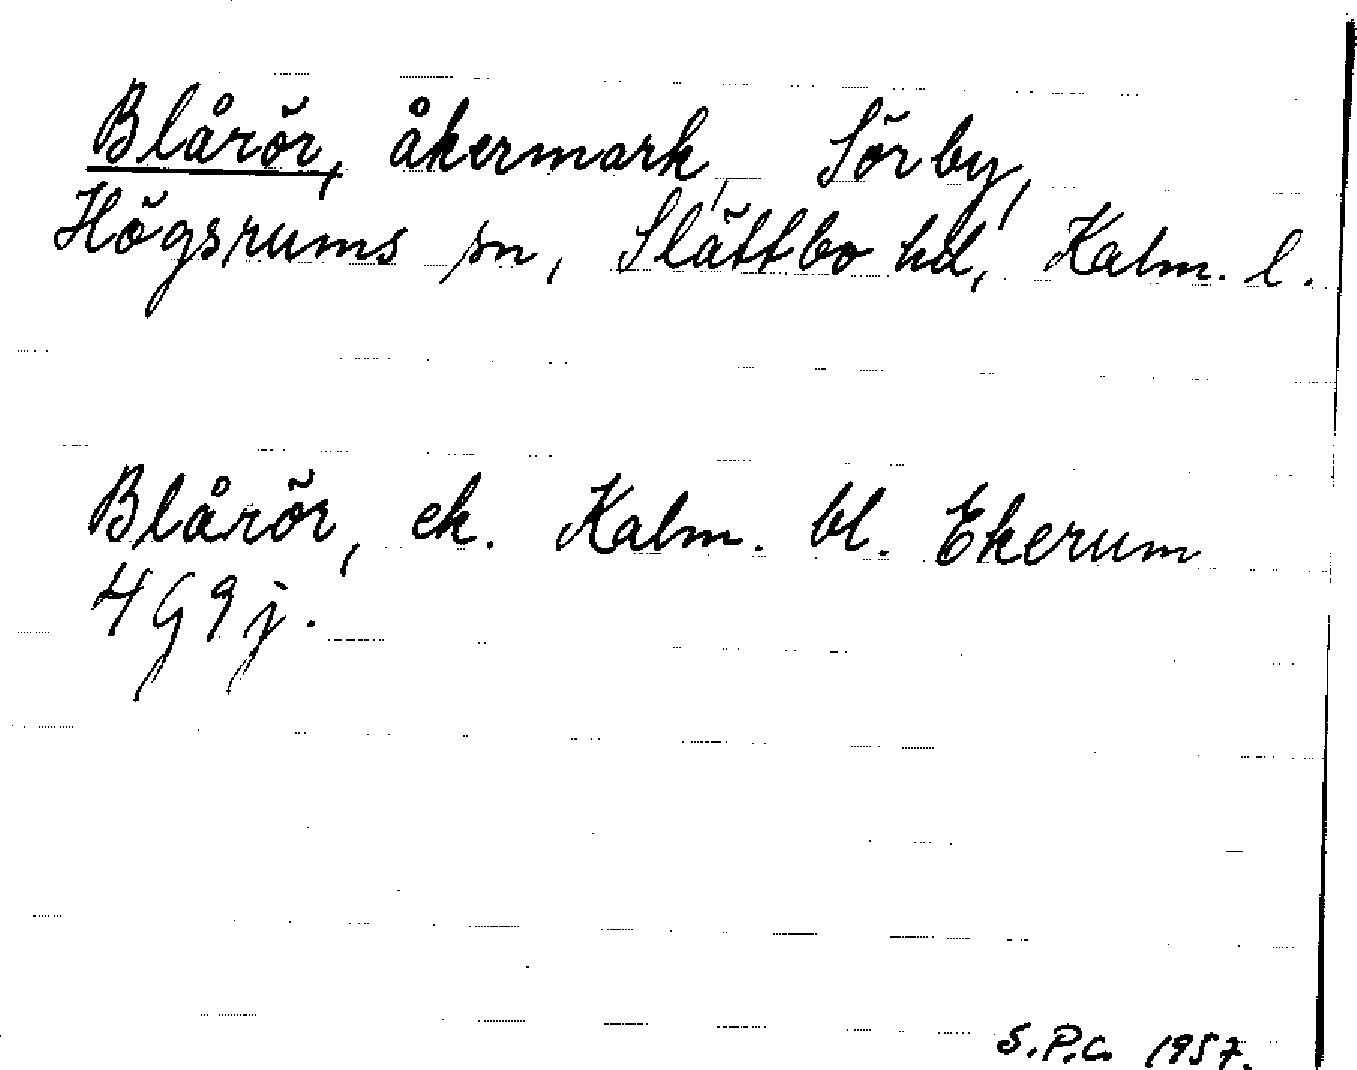 Blårör, åkermark, Sörby,
Högsrums sn, Slättbo hd, Kalm. l.
Blårör, ek. Kalm. bl. Ekerum
4G9j.
S.P.C. 1957.